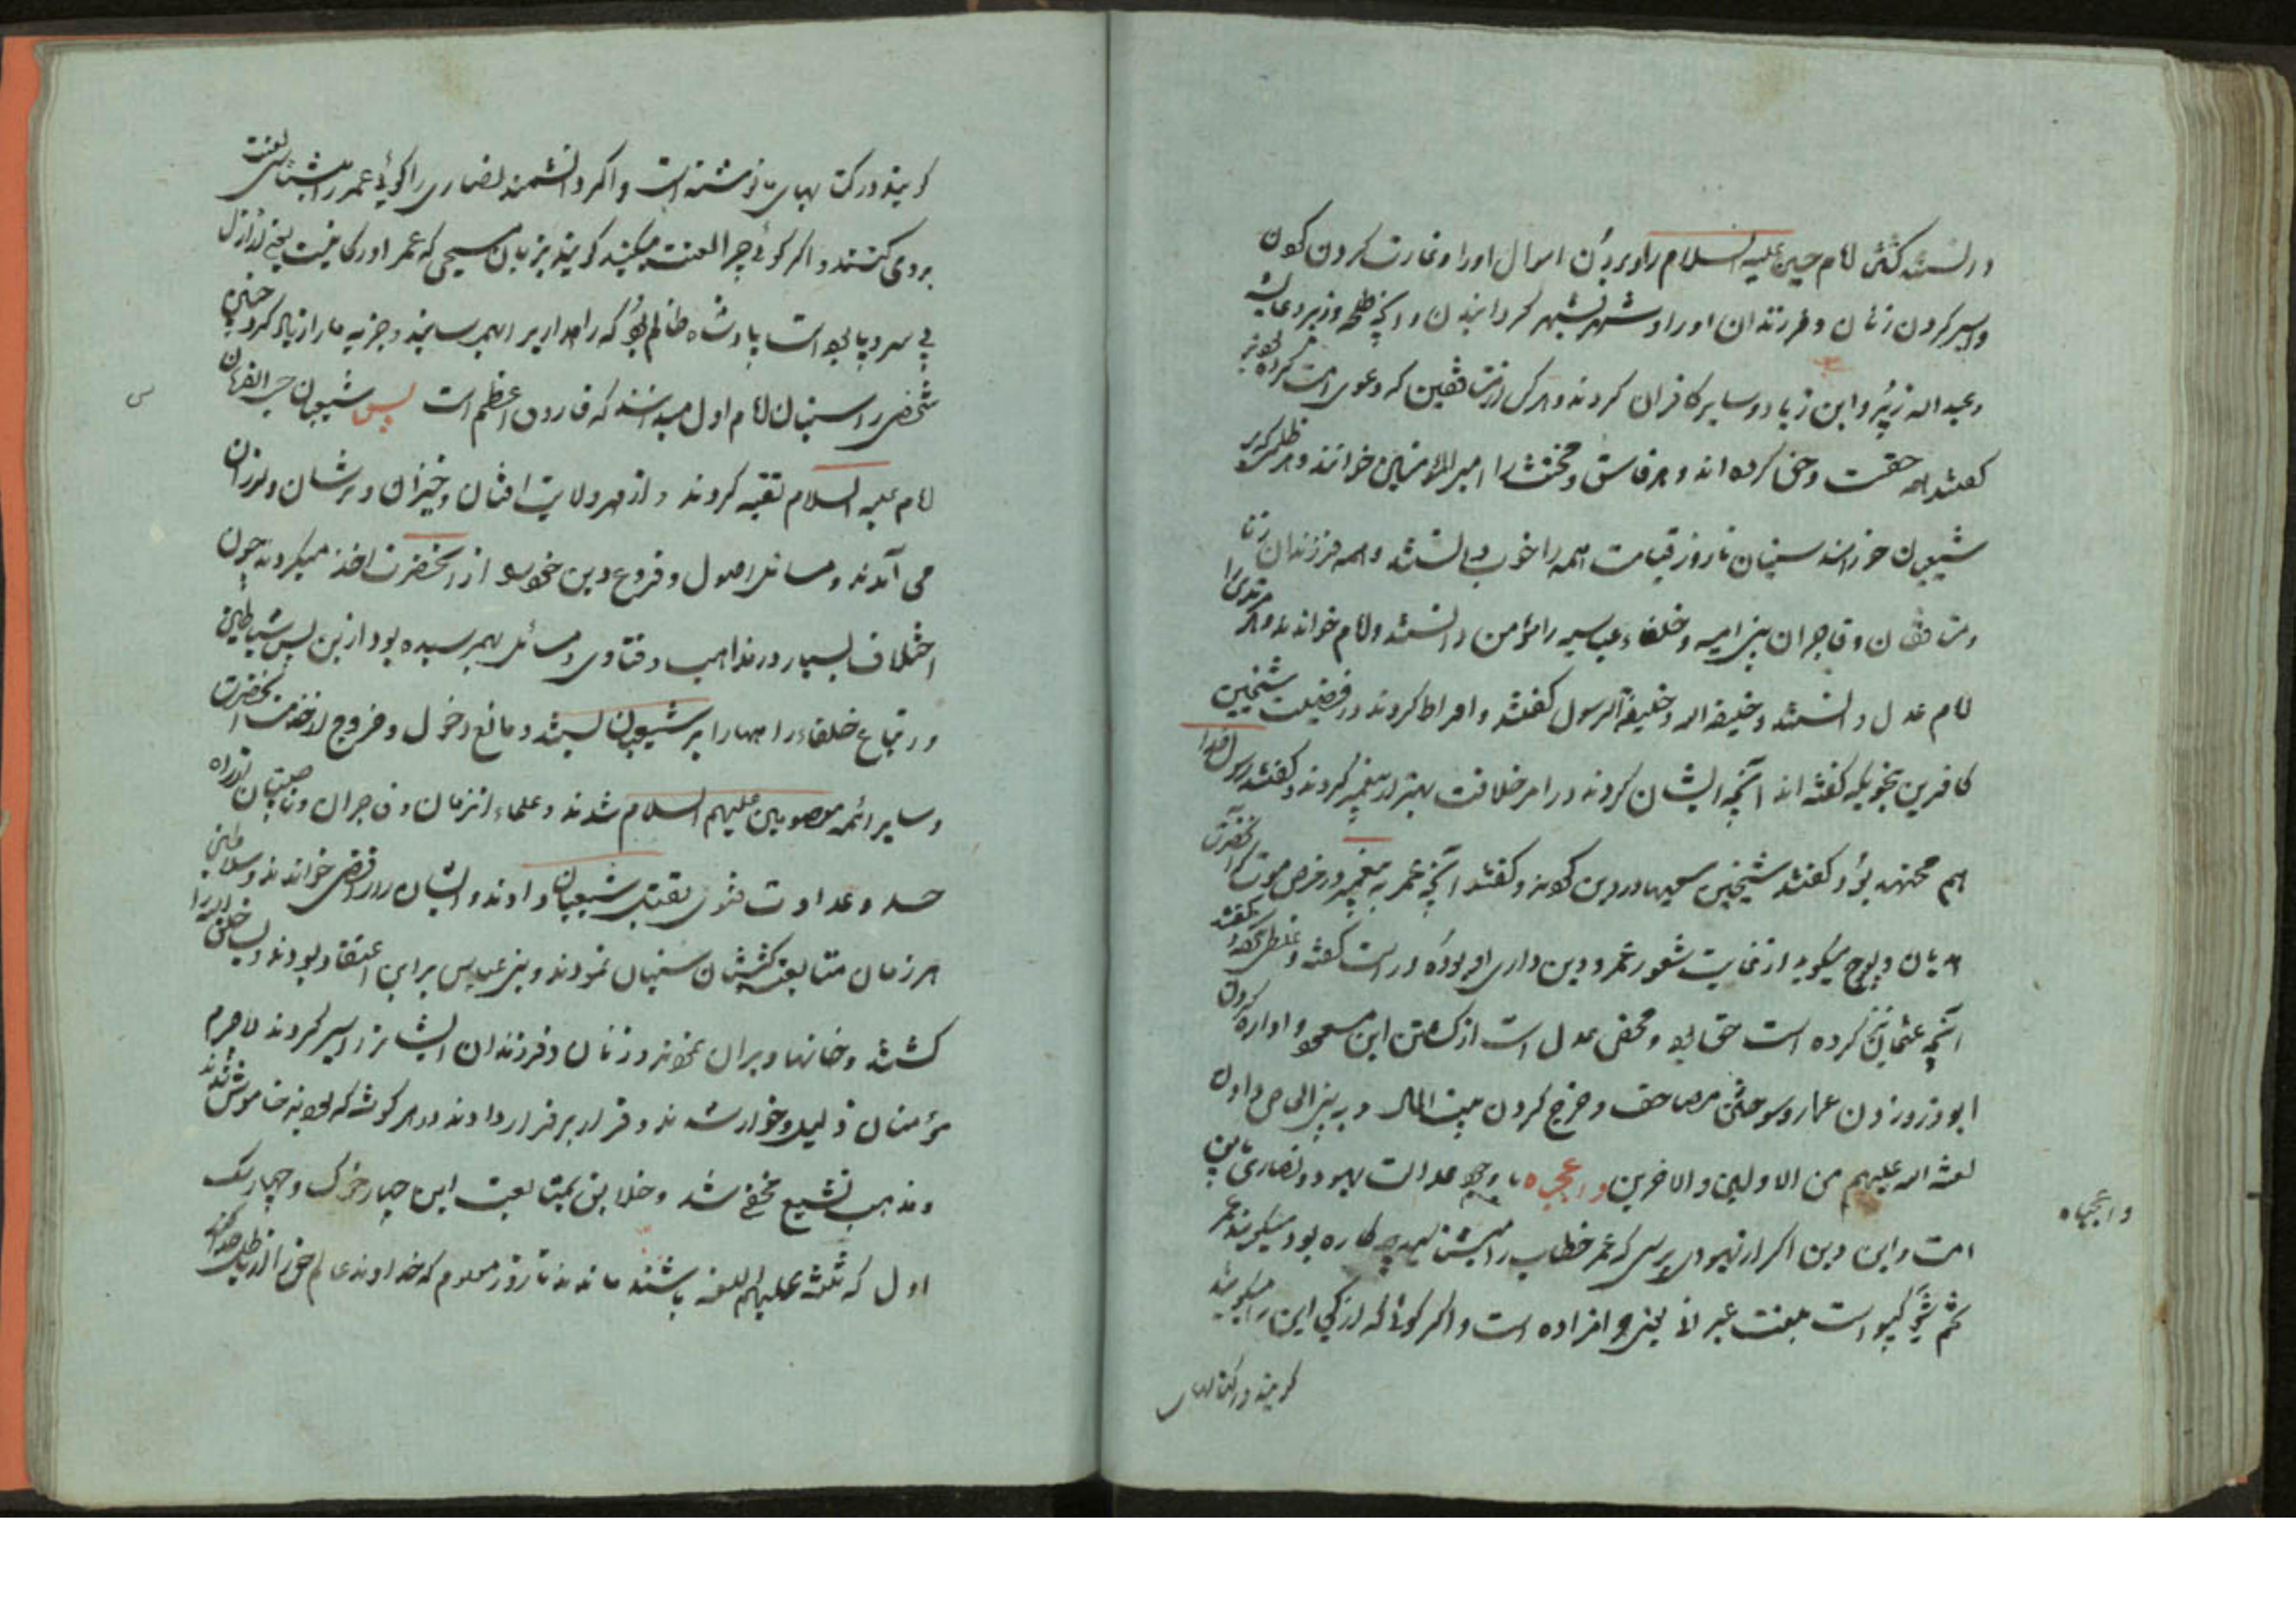 دانستند کشتن امام حسین علیه السلام را و بردن اموال او را و غارت کردن کون
و اسیر کردن زنان و فرزندان او را و شهر بشهر گردانیدن و آنچه طلحه و زبیر و عایشه
و عبد الله زبیر و ابن زیاد و سایر کافران کردند و هر کس از منافقین که دعوی امامت کرده بودند
گفتند همه حقست و حق کرده اند و هر فاسق و مخنث را امیر المؤمنین خواندند و هر ظلمی که بر
شیعیان سنیان تا روز قیامت همه را خوب دانستند و همه فرزندان زنا
و منافقان و فاجران بنی امیه و خلفاء عباسیه را مؤمن دانستند و امام خواندند و هر مرتدی را
امام عدل دانستند و خلیفة الله و خلیفة الرسول گفتند و افراط کردند در فضیلت شیخین
کافرین بنحویکه گفته اند آنچه ایشان کردند در امر خلافت بهتر از پیغمبر کردند و گفتند رسول خدا
هم مجتهد بود و گفتند شیخین سعیها در دین کردند و گفتند آنچه عمر به پیغمبر در مرض موت آنحضرت
هذیان و پوچ میگوید از غایت شعور عمر و دین داری او بوده و راست گفته و غلط نکرد و گفتند
آنچه عثمان نیز کرده است حق بود و محض عدل است از کشتن ابن مسعود و اواره کردن
ابوذر و زدن عمار و سوختن مصاحف و خرج کردن بیت المال و به بنی العاص دادن
لعنة الله علیهم من الاولین و الاخرین وا عجباه با وجود عداوت یهود و نصاری باین
وا عجباه
امت و این دین اگر از یهودی پرسی که عمر خطاب را میشناسید چه کاره بود میگویند عمر
شم است بلغت عبرانی یعنی افزاده است و اگر گوئی که از کجا این را میگویید
گویند در کتابهای
گویند در کتابهای ما نوشته است و اگر دانشمند نصاری را گوئی عمر را میشناسی لعنت
بر وی کنند و اگر گوئی چرا لعنت میکنید گویند بزبان مسیحی که عمر اورکافیت یعنی
بی سر و پا بوده است پادشاه ظالم بود که راهها را بر ما و جزیه ما را زیاد کرد چنین
شخصی را سنیان امام اول میدانند که فاروق اعظم است پس شیعیان حسب الفرمان
امام علیه السلام تقیه کردند و از مهر ولایت افتان و خیزان و ترسان و لرزان
می آمدند و مسائل اصول و فروع دین خود را از آنحضرت اخذ میکردند چون
اختلاف بسیار در مذاهب و فتاوی و مسائل بهم رسیده بود ازین پس شیاطین
و اتباع خلفاء راهها را بر شیعیان بستند و مانع دخول و خروج از خدمت آنحضرت
و سایر ائمه معصومین علیهم السلام شدند و علماء انزمان و فاجران و
حسد و عداوت فتوی بقتل شیعیان دادند و ایشان را رافضی خواندند و سلاطین
هر زمان متابعت سنیان نمودند و بنی عباس بر این اعتقاد بودند و بسی خلق الله را
کشتند و خانها ویران نمودند و زنان و فرزندان ایشانرا اسیر کردند لاجرم
مؤمنان ذلیل و خوار شدند و قرار بر فرار دادند در هر گوشه که بودند خاموش شدند
و مذهب تشیع مخفی شد و خلایق بمتابعت این چهار خوک و چهار سگ
اول که ثلثه علیهم اللعنه باشند ماندند تا روز معلوم که خداوند عالم